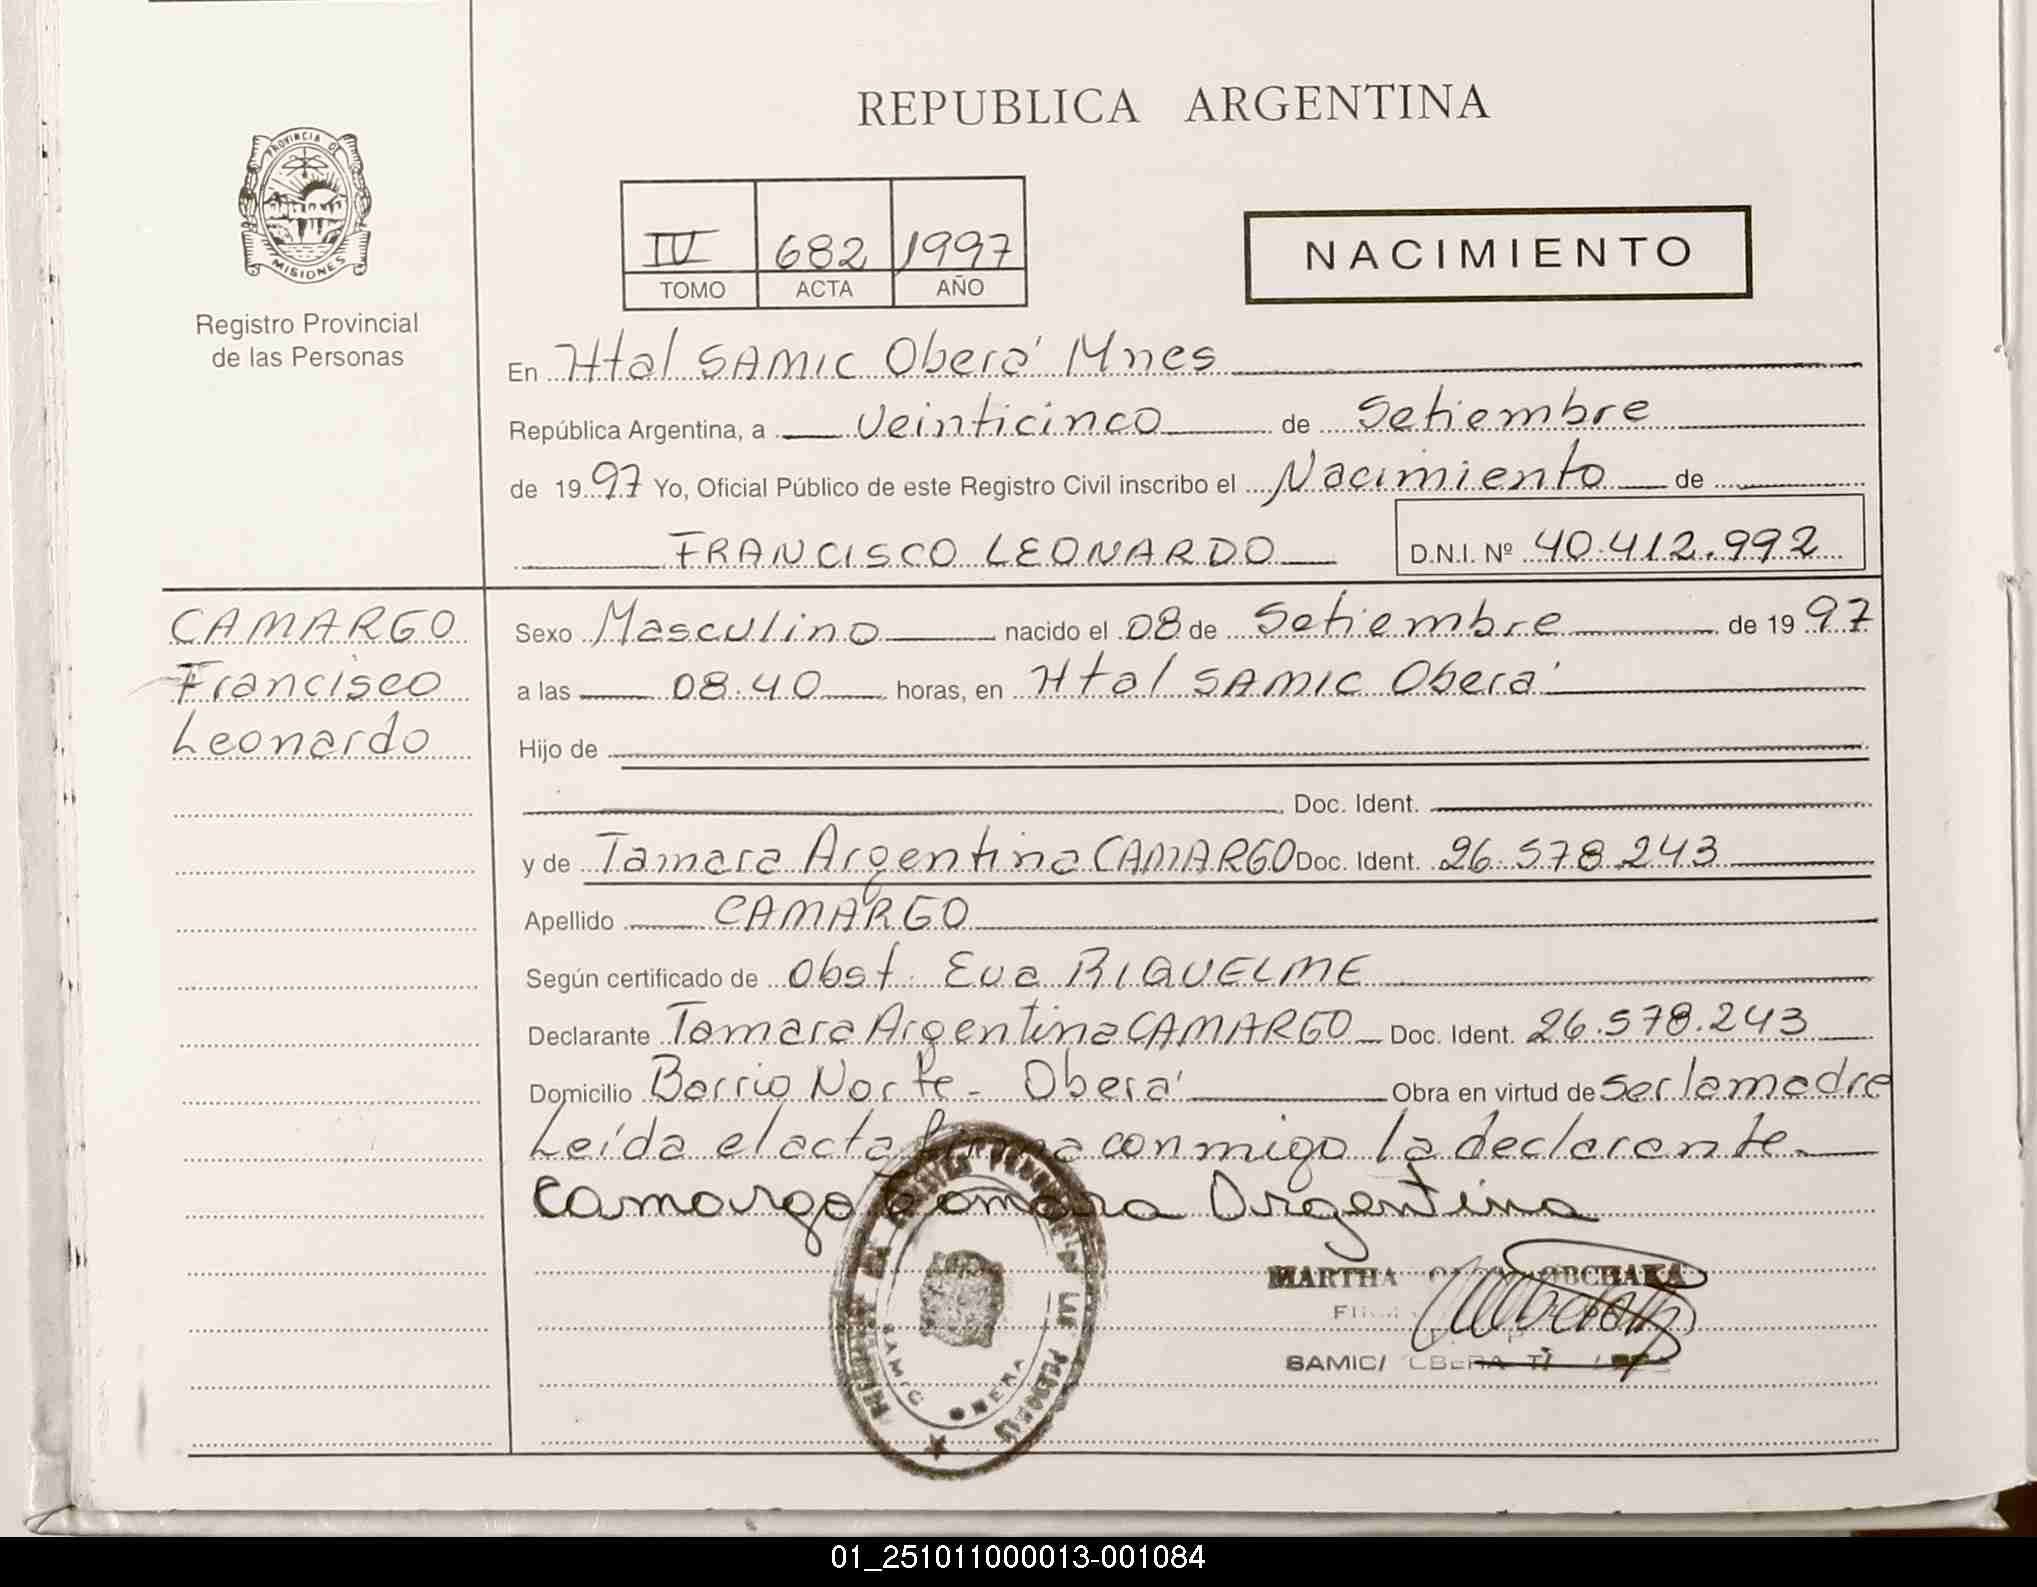 REPUBLICA ARGENTINA
PROVINCIA DE
MISIONES
Registro Provincial
de las Personas
IV 682 1997
TOMO ACTA AÑO
NACIMIENTO
En Htal SAMIC Oberá Mnes
República Argentina, a veinticinco de Setiembre
de 1997 Yo, Oficial Público de este Registro Civil inscribo el Nacimiento de
FRANCISCO LEONARDO D.N.I. Nº 40.412.992
CAMARGO
Francisco
Leonardo
Sexo Masculino nacido el 08 de Setiembre de 1997
a las 08.40 horas, en Htal SAMIC Oberá
Hijo de
Doc. Ident.
y de Tamara Argentina CAMARGO Doc. Ident. 26.578.243
Apellido CAMARGO
Según certificado de Obst. Eva RIQUELME
Declarante Tamara Argentina CAMARGO Doc. Ident. 26.578.243
Domicilio Barrio Norte - Oberá Obra en virtud de ser la madre
Leída el acta firma conmigo la declarante.
Camargo Tamara Argentina
MARTHA
SAMIC/ OBERA
SAMIC OBERA
01_251011000013-001084